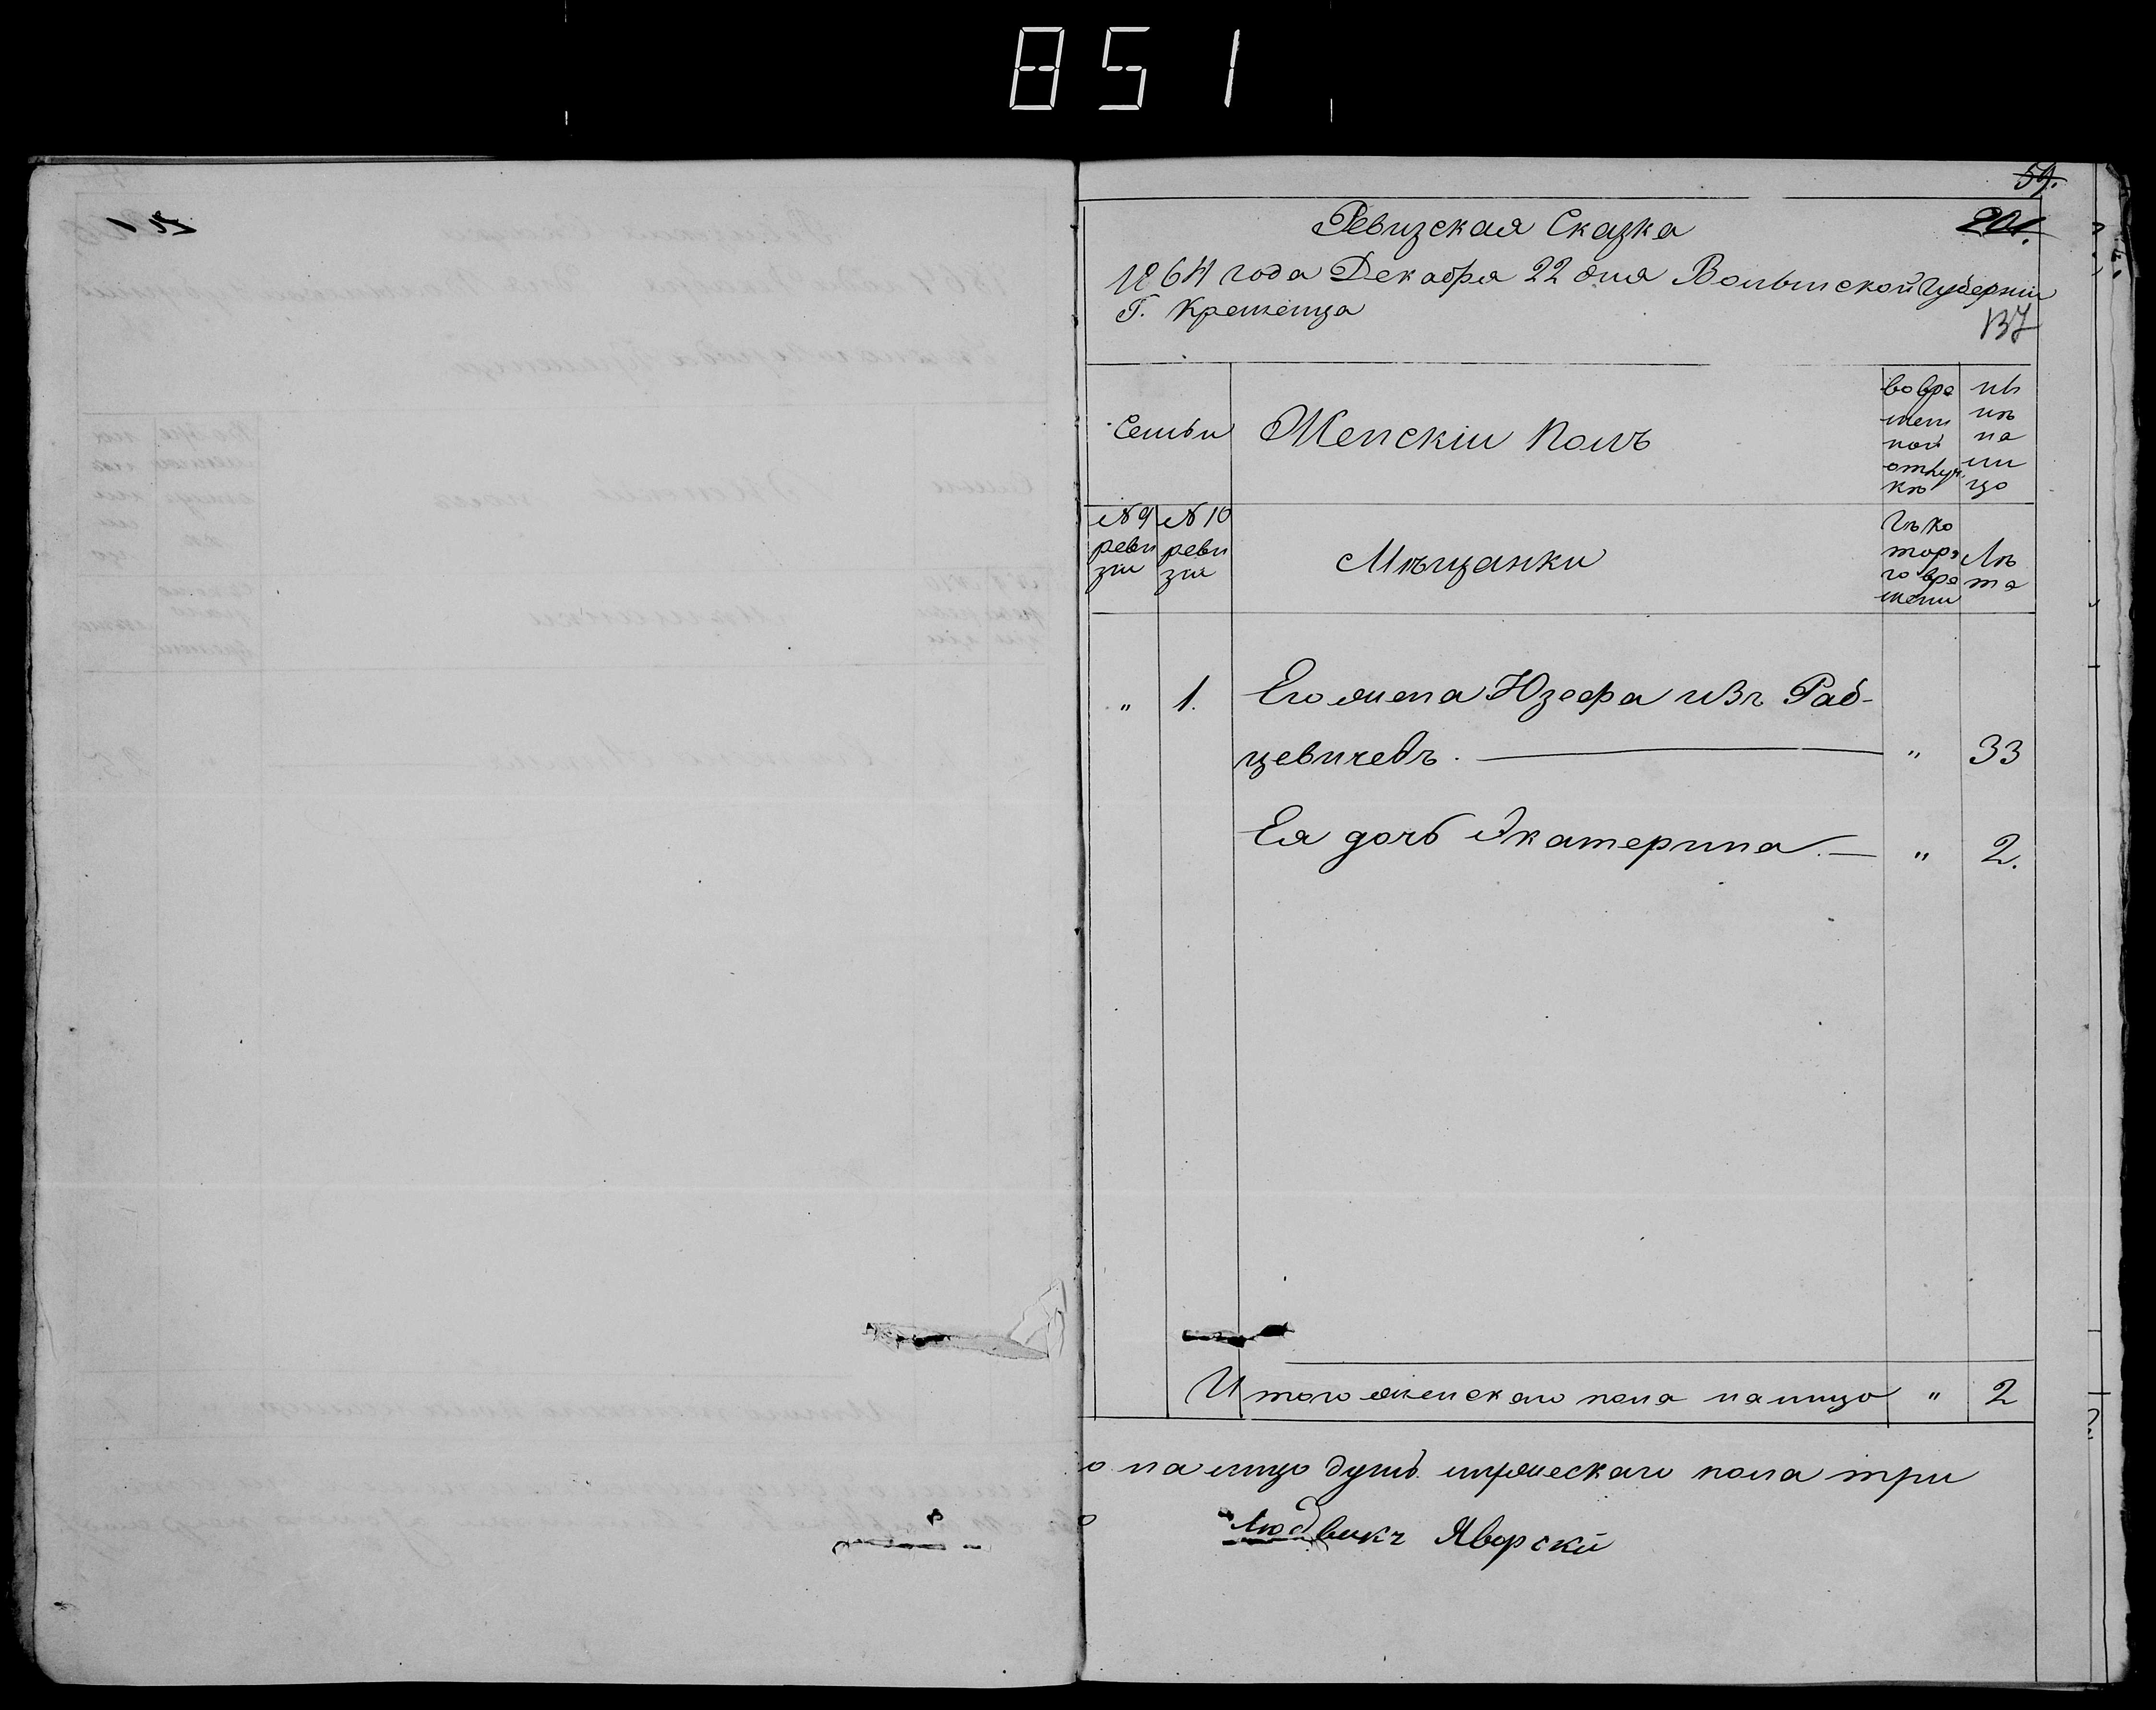 851
59.
201.
Ревизская Сказка
1864 года Декабря 22 дня Волынской Губерніи
Г. Кременца
137
Семьи
Женскій Полъ
во вре
мен
ной
отлуч
кѣ
На
ли
цо
№ 9
реви
зіи
№ 10
реви
зіи
Мѣщанки
Съ ко
тора
го вре
мени
Лѣ
та
" 1. Его жена Юзефа изъ Раб-
цевичевъ. " 33
Ея дочь Екатерина. " 2.
Итого женскаго пола налицо " 2
о на лицо душъ мужескаго пола три
Людвикъ Яворскій